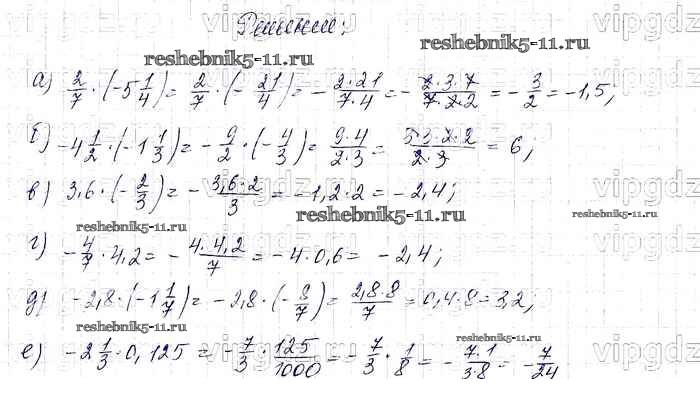 Решение:
vipgdz
reshebnik5-11.ru
reshebnik5-11.ru
а) 2/7 · (-5 1/4) = 2/7 · (- 21/4) = - 2·21/7·4 = - 2·3·7/7·2·2 = - 3/2 = -1,5;
б) -4 1/2 · (-1 1/3) = - 9/2 · (- 4/3) = 9·4/2·3 = 3·3·2·2/2·3 = 6;
в) 3,6 · (- 2/3) = - 3,6·2/3 = -1,2·2 = -2,4;
reshebnik5-11.ru
reshebnik5-11.ru
reshebnik5-11.ru
г) - 4/7 · 4,2 = - 4·4,2/7 = -4·0,6 = -2,4;
д) -2,8 · (-1 1/7) = -2,8 · (- 8/7) = 2,8·8/7 = 0,4·8 = 3,2;
reshebnik5-11.ru
reshebnik5-11.ru
е) -2 1/3 · 0,125 = - 7/3 · 125/1000 = - 7/3 · 1/8 = - 7·1/3·8 = - 7/24